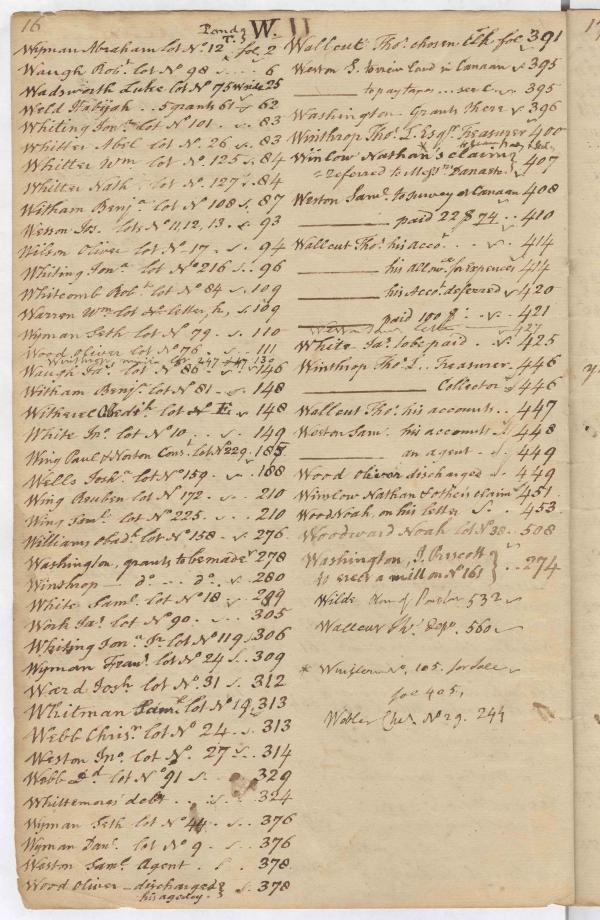 16
Pond
T. W.
Wyman Abraham lot No. 12 fol. 2
Waugh Robt. lot No 98 . . . . 6
Wadsworth Luke lot No 75 25
Weld Habijah . . 5 grants 61 62
Whiting Jonn. lot No 101 . . 83
Whitter Abel lot No. 26 . . 83
Whitter Wm. lot No. 125 . . 84
Whitter Nath. lot No. 127 . . 84
Witham Benja. lot No 108 . . 87
Wesson Jos. lots No 11, 12, 13 . . 93
Wilson Oliver lot No. 17 . . 94
Whiting Jona. lot No 216 . . 96
Whitcomb Robt. lot No 84 . . 109
Warren Wm lot letter, h, . . 109
Wyman Seth lot No 79 . . 110
Wood Oliver lot No 76 . . 111
Waugh Jas. lot No 86 . . 146
Witham Benja. lot No 81 . . 148
Witherel Obedh. lot No E . . 148
White Jno. lot No 10 . . . 149
Wing Paul & Norton Cons. lot No 229 . 185
Wells Josha. lot No 159 . . 188
Wing Reuben lot No 172 . . . 210
Wing Saml. lot No 225 . . . 210
Williams Obadh. lot No 158 . . 276
Washington, grants to be made 278
Winthrop — do . . . do . . 280
White Saml. lot No 18 . . 299
Work Jas. lot No 90 . . . 305
Whiting Jona. Jr lot No 119 . 306
Wyman Frans. lot No 24 . . 309
Ward Josh. lot No 31 . . 312
Whitman Saml. lot No 19, 313
Webb Chrisr. lot No 24 . . 313
Weston Jno. lot No. 27 . . . 314
Webb Dd. lot No 91 . . . . 329
Whittemores' debt . . . . 324
Wyman Seth lot No 44 . . . 376
Wyman Danl. lot No 9 . . . 376
Weston Saml. Agent . . . 378
Wood Oliver — discharged 378
his agency
Wallcut Thos. chosen Clk fol 391
Weston S. to view land in Canaan 395
— to pay taxes . . see C . 395
Washington Grants there 396
Winthrop Thos. L. Esqr. Treasurer 400
Winlow Nathan's claim
Referred to Messrs. Danasts. 407
Weston Saml. to survey at Canaan 408
— paid 22 $ 74 . . 410
Wallcut Thos. his acco. . . . 414
— his allowce. for expences 414
— his Acco. deferred 420
— paid 100 $ . . . 421
427
White Jas. to be paid . . 425
Winthrop Thos. L. . Treasurer . 446
— Collector . 446
Wallcut Thos. his accounts . . 447
Weston Saml. his accounts . 448
— an agent . . 449
Wood Oliver discharged . 449
Winslow Nathan & others claim 451
Wood Noah, on his letter . . 453
Woodward Noah lot No 38 . . 508
Washington, J. Prescott
to erect a mill on No 161 . . 274
Wilds Plan of 532
Wallcut Thos. Depo. 560
* Winslow No. 105. for sale
fol 405,
Webber Chs. No 29. 244